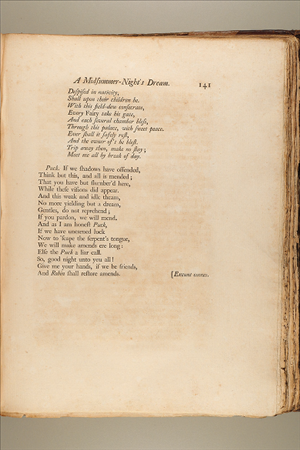 A Midsummer-Night's Dream. 141
Despised in nativity,
Shall upon their children be.
With this field-dew consecrate,
Every Fairy take his gate,
And each several chamber bless,
Through this palace, with sweet peace.
Ever shall it safely rest,
And the owner of 't be blest.
Trip away then, make no stay;
Meet me all by break of day.
Puck. If we shadows have offended,
Think but this, and all is mended;
That you have but slumber'd here,
While these visions did appear.
And this weak and idle theam,
No more yielding but a dream,
Gentles, do not reprehend;
If you pardon, we will mend.
And as I am honest Puck,
If we have unearned luck
Now to 'scape the serpent's tongue,
We will make amends ere long:
Else the Puck a liar call.
So, good night unto you all!
Give me your hands, if we be friends,
And Robin shall restore amends. [Exeunt omnes.